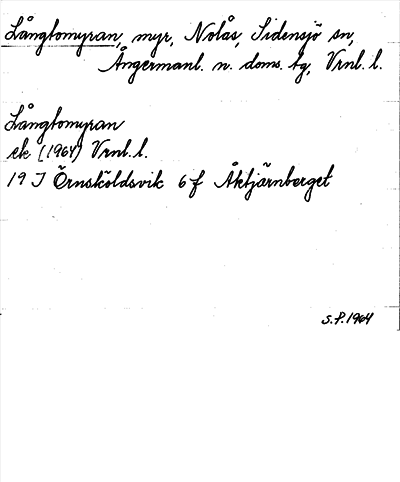 Långtomyran, myr, Nolås, Sidensjö sn,
Ångermanl. n. doms. tg, Vrnl. l.
Långtomyran
ek (1964) Vrnl. l.
19 J Örnsköldsvik 6 f Åktjärnberget
S.P. 1964